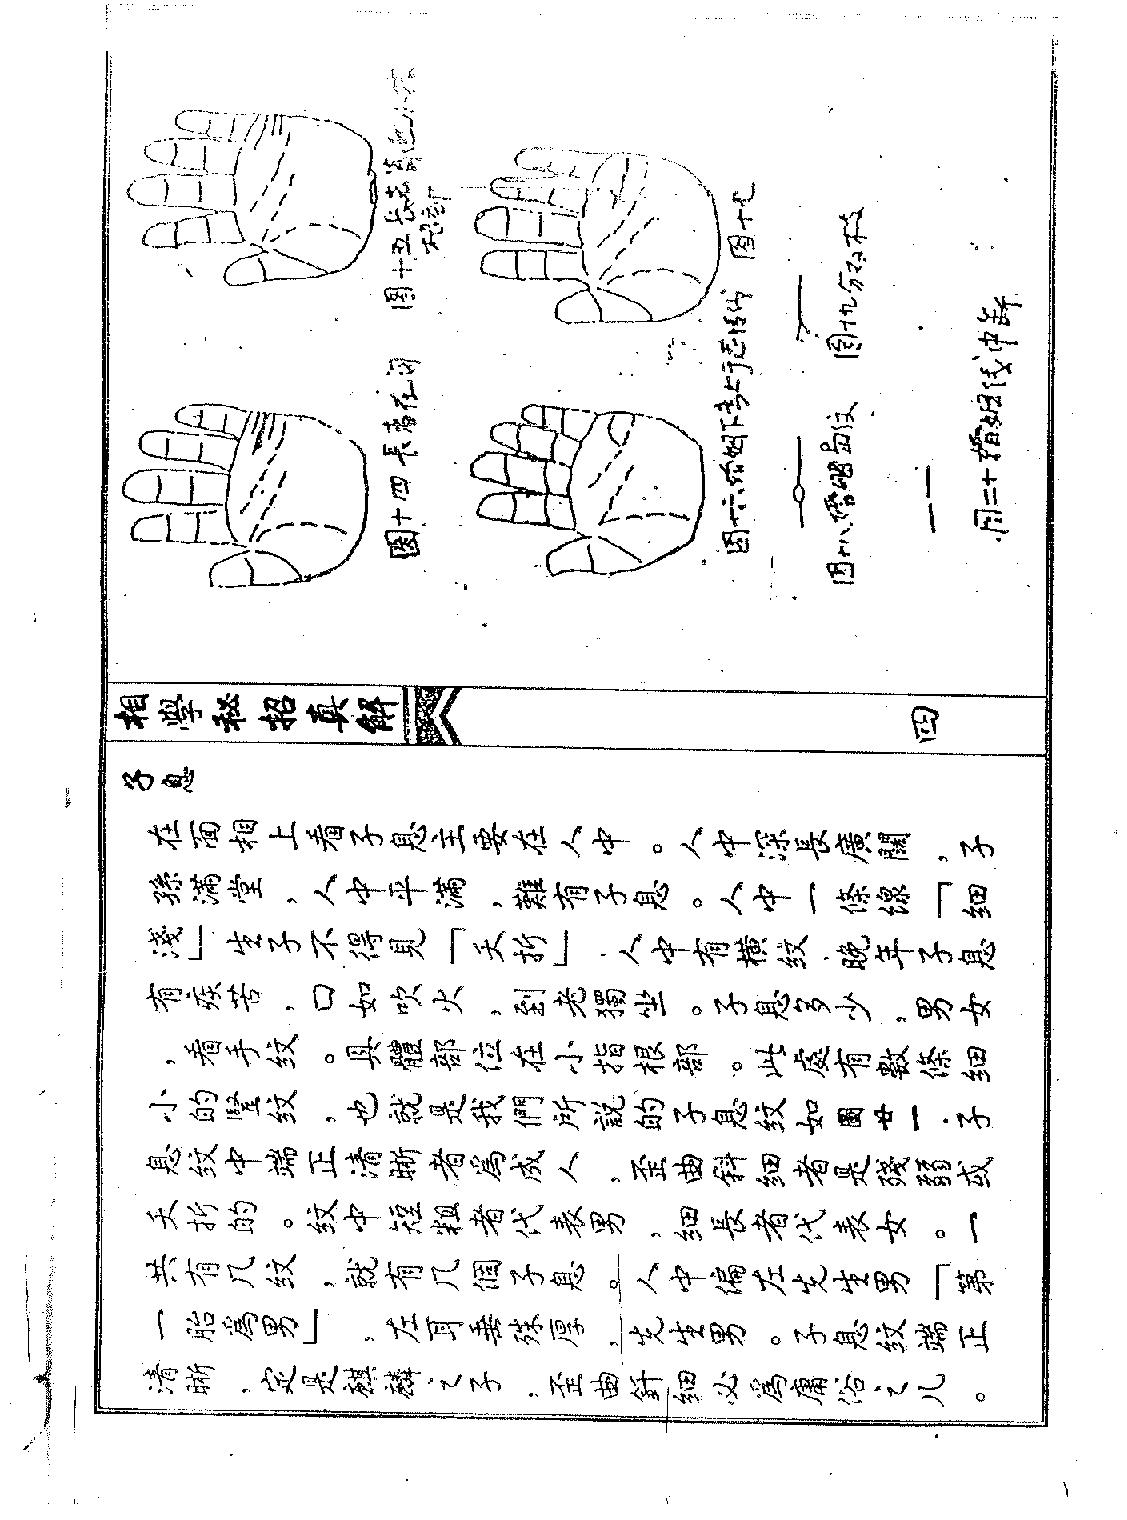 圖十四 長者在
圖十五 長者
圖十六 姻下
圖十七
圖十八 婚姻島纹
圖十九分
圖二十婚姻线中断
相學秘招真解
四
子息
在面相上看子息主要在人中。人中深長廣闊，子
孫滿堂，人中平滿，難有子息。人中一條線「细
淺」生子不得見「夭折」．人中有橫纹．晚年子息
有疾苦，口如吹火，到老獨坐。子息多少，男女
，看手纹。具體部位在小指根部。此處有數條细
小的竪纹，也就是我們所説的子息纹如圖廿一．子
息纹中端正清晰者爲成人，歪曲斜细者是殘弱或
夭折的。纹中短粗者代表男，细長者代表女。一
共有几纹，就有几個子息。人中偏左先生男「第
一胎爲男」，左耳垂殊厚，先生男。子息纹端正
清晰，定是麒麟之子，歪曲斜细必爲庸俗之儿。